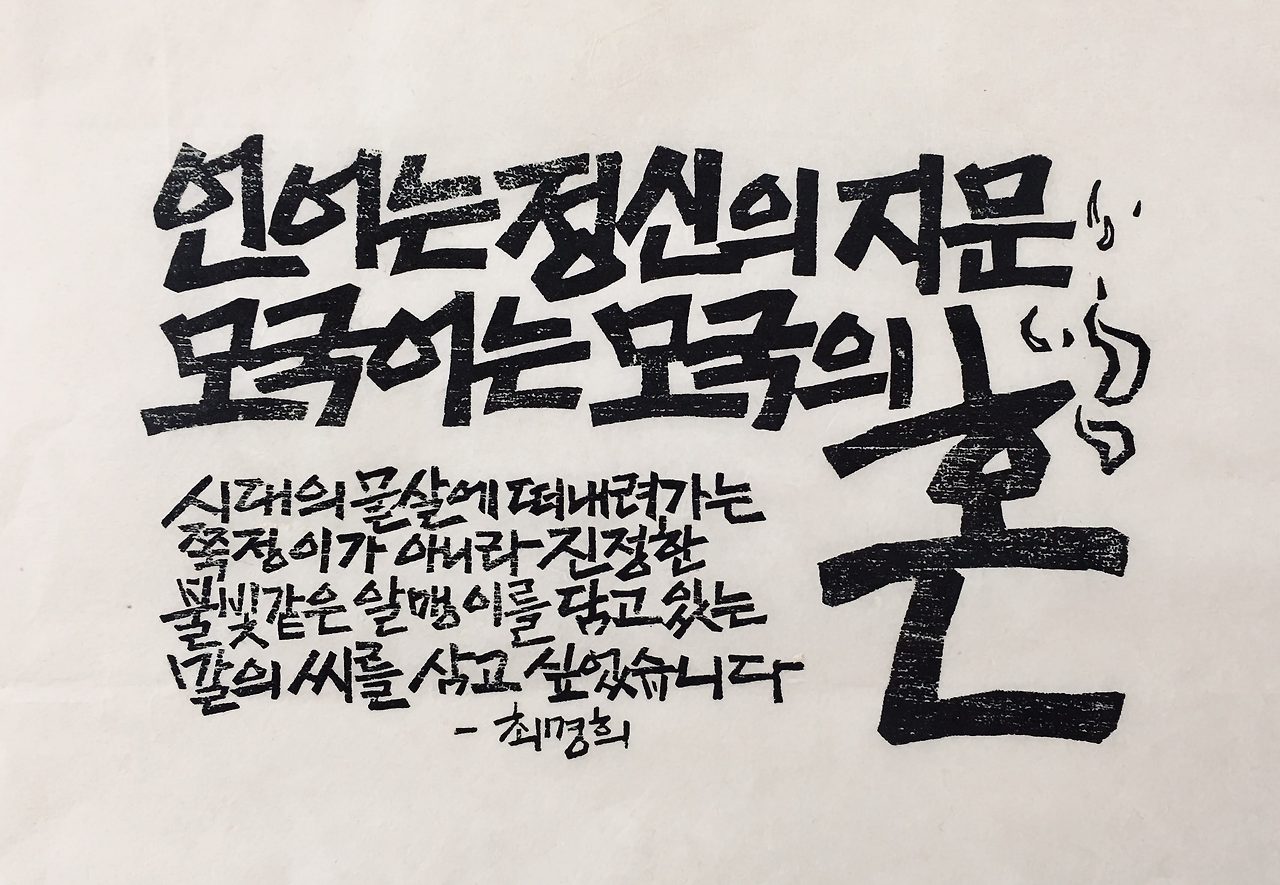 언어는 정신의 지문
모국어는 모국의 혼
시대의 물살에 떠내려가는
쭉정이가 아니라 진정한
불빛같은 알맹이를 담고 있는
말의 씨를 심고 싶었습니다
- 최경희